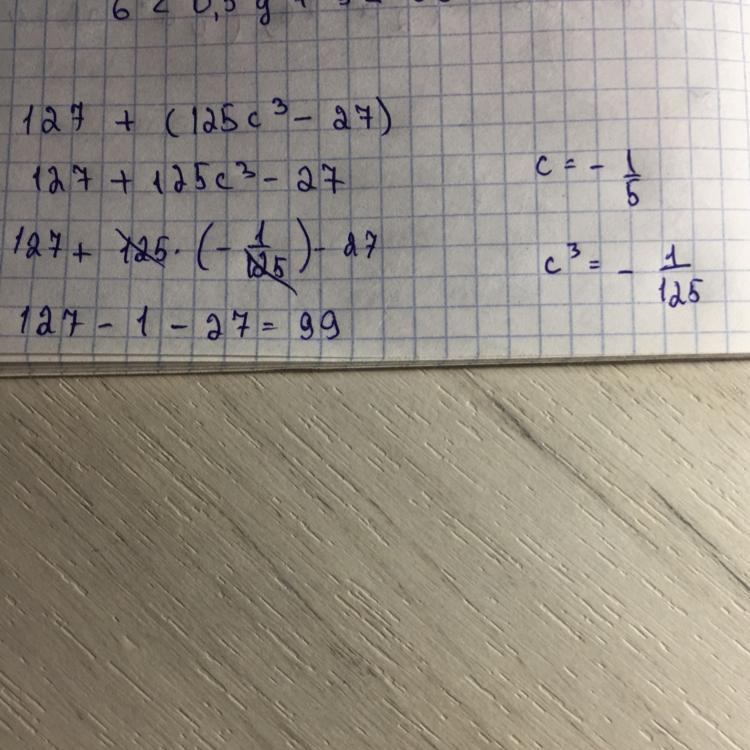 127 + (125c³ - 27)
127 + 125c³ - 27
c = - 1/5
127 + 125 · (- 1/125) - 27
c³ = - 1/125
127 - 1 - 27 = 99